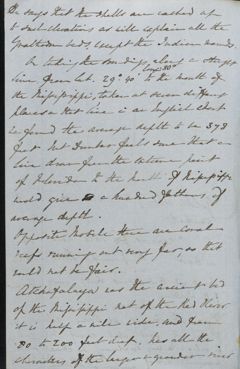 He says that the shells are washed up
to such elevations as will explain all the
Gnathodon beds, except the Indian mounds.
In taking the soundings, along a straight
line from Lat. 29° 40' to the mouth of
the Mississippi, taken at seven different
places on that line in an English Chart
is found the average depth to be 378
feet. But Dunbar feels sure that a
line drawn from the extreme point
of Florida to the mouth of Mississippi
would give a hundred fathoms of
average depth.
Opposite Mobile there are coral
reefs running out very far, so that
could not be fair.
Atchafalaya was the ancient bed
of the Mississippi not of the Red River
it is half a mile wide, and from
80 to 200 feet deep, has all the
characters of the larger & grander river